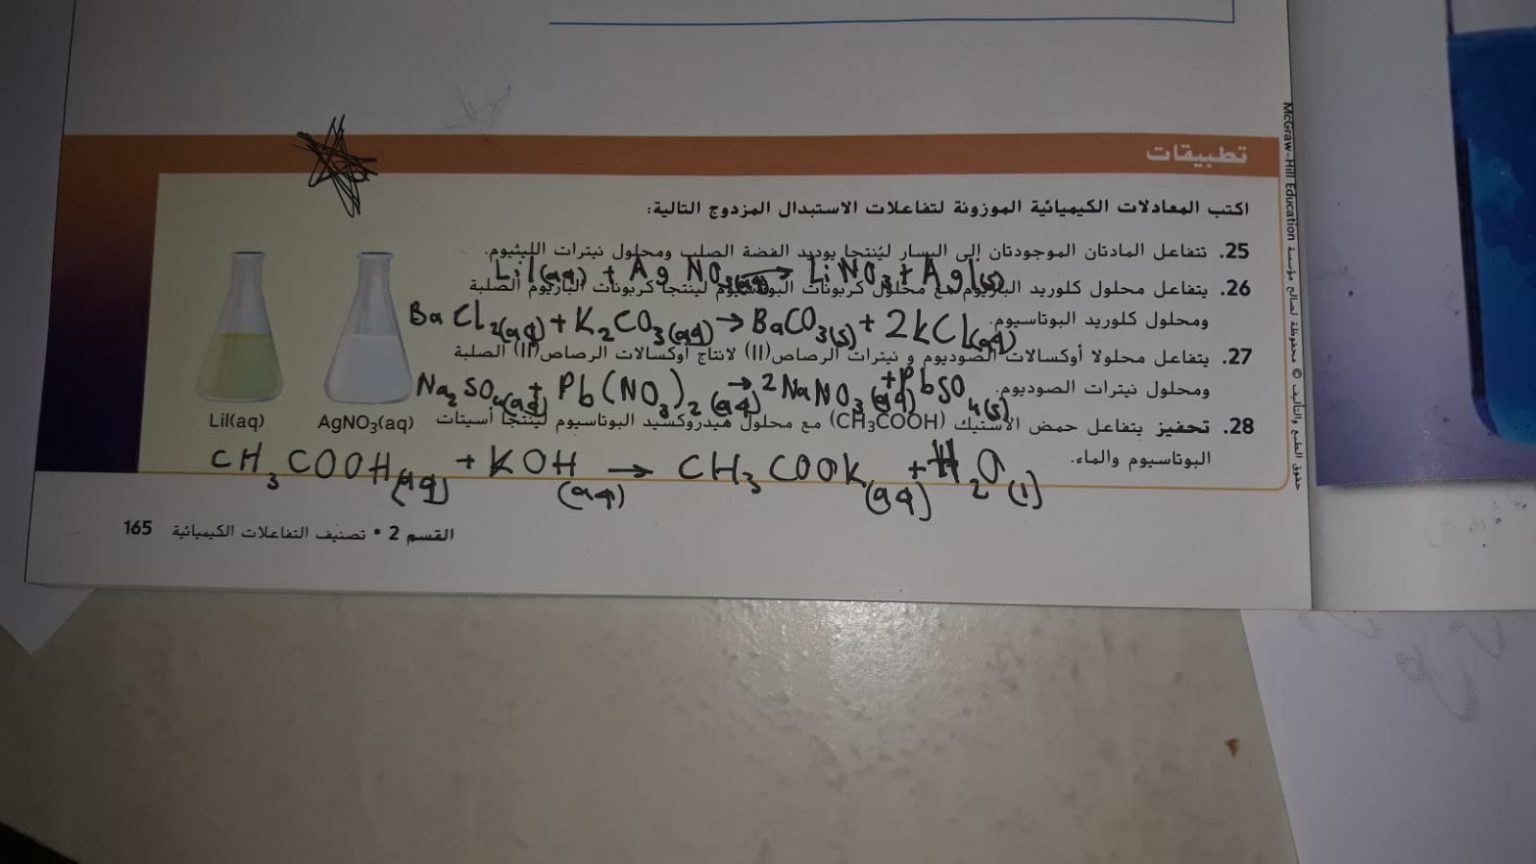 تطبيقات
اكتب المعادلات الكيميائية الموزونة لتفاعلات الاستبدال المزدوج التالية:
25. تتفاعل المادتان الموجودتان إلى اليسار ليُنتجا يوديد الفضة الصلب ومحلول نيترات الليثيوم.
LiI(aq) + AgNO3(aq) → LiNO3 + AgI(s)
26. يتفاعل محلول كلوريد الباريوم مع محلول كربونات البوتاسيوم لينتجا كربونات الباريوم الصلبة
ومحلول كلوريد البوتاسيوم.
BaCl2(aq) + K2CO3(aq) → BaCO3(s) + 2KCl(aq)
27. يتفاعل محلولا أوكسالات الصوديوم و نيترات الرصاص(II) لانتاج أوكسالات الرصاص(II) الصلبة
ومحلول نيترات الصوديوم.
Na2SO4(aq) + Pb(NO3)2(aq) → 2NaNO3(aq) + PbSO4(s)
28. تحفيز يتفاعل حمض الأستيك (CH3COOH) مع محلول هيدروكسيد البوتاسيوم لينتجا أسيتات
البوتاسيوم والماء.
CH3COOH(aq) + KOH(aq) → CH3COOK(aq) + H2O(l)
LiI(aq)
AgNO3(aq)
القسم 2 • تصنيف التفاعلات الكيميائية 165
حقوق الطبع والتأليف © محفوظة لصالح مؤسسة McGraw-Hill Education